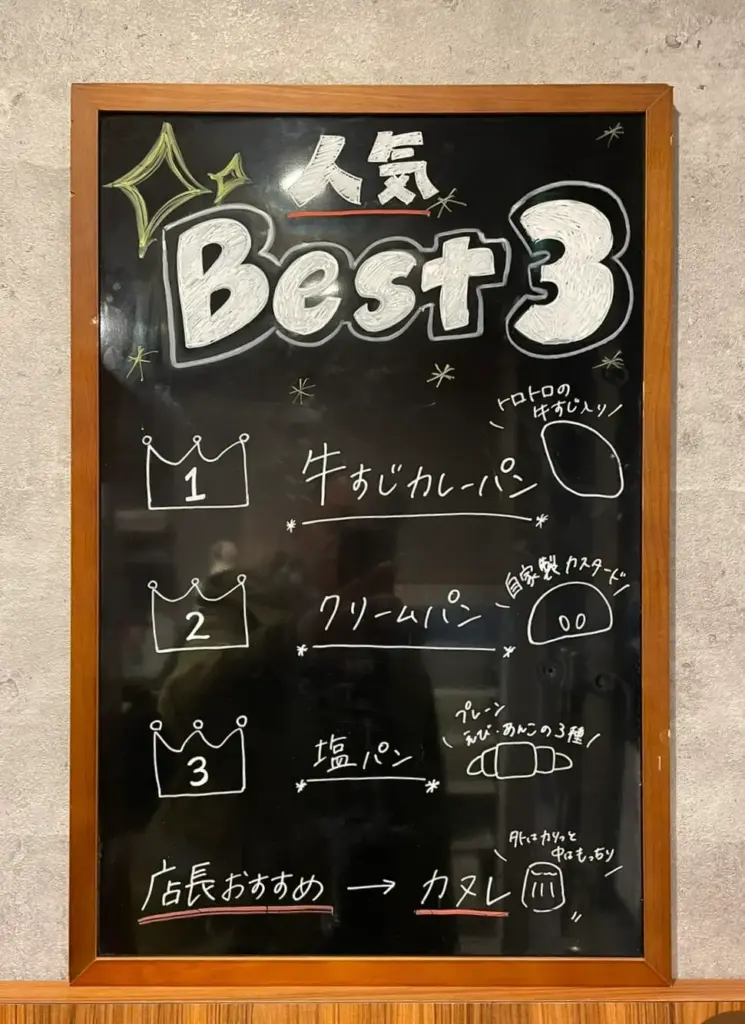 人気
Best 3
トロトロの
牛すじ入り
1 牛すじカレーパン
自家製カスタード
2 クリームパン
プレーン
えび・あんこの3種
3 塩パン
外はカリっと
中はもっちり
店長おすすめ → カヌレ